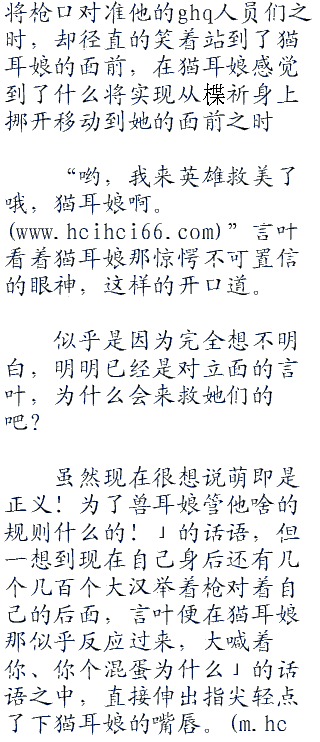 将枪口对准他的ghq人员们之
时，却径直的笑着站到了猫
耳娘的面前，在猫耳娘感觉
到了什么将实现从楪祈身上
挪开移动到她的面前之时
“哟，我来英雄救美了
哦，猫耳娘啊。
(www.hcihci66.com)”言叶
看着猫耳娘那惊愕不可置信
的眼神，这样的开口道。
似乎是因为完全想不明
白，明明已经是对立面的言
叶，为什么会来救她们的
吧？
虽然现在很想说萌即是
正义！为了兽耳娘管他啥的
规则什么的！」的话语，但
一想到现在自己身后还有几
个几百个大汉举着枪对着自
己的后面，言叶便在猫耳娘
那似乎反应过来，大喊着
你、你个混蛋为什么」的话
语之中，直接伸出指尖轻点
了下猫耳娘的嘴唇。(m.hc